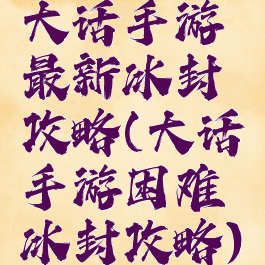 大话手游
最新冰封
攻略(大话
手游困难
冰封攻略)